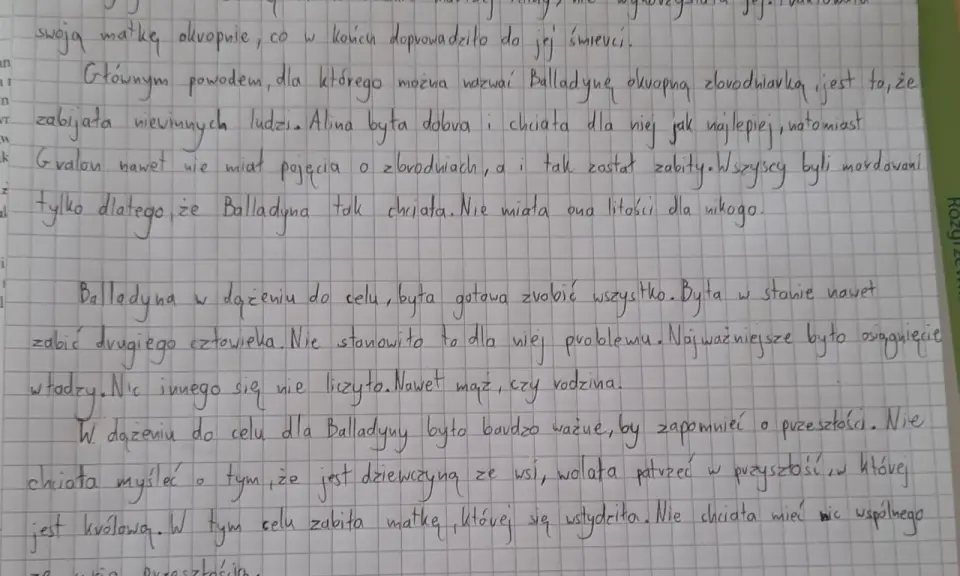 swoją matkę okropnie, co w końcu doprowadziło do jej śmierci.
Głównym powodem, dla którego można nazwać Balladynę okropną zbrodniarką, jest to, że
zabijała niewinnych ludzi. Alina była dobra i chciała dla niej jak najlepiej, natomiast
Gralon nawet nie miał pojęcia o zbrodniach, a i tak został zabity. Wszyscy byli mordowani
tylko dlatego, że Balladyna tak chciała. Nie miała ona litości dla nikogo.
Balladyna w dążeniu do celu, była gotowa zrobić wszystko. Była w stanie nawet
zabić drugiego człowieka. Nie stanowiło to dla niej problemu. Najważniejsze było osiągnięcie
władzy. Nic innego się nie liczyło. Nawet mąż, czy rodzina.
W dążeniu do celu dla Balladyny było bardzo ważne, by zapomnieć o przeszłości. Nie
chciała myśleć o tym, że jest dziewczyną ze wsi, wolała patrzeć w przyszłość, w której
jest królową. W tym celu zabiła matkę, której się wstydziła. Nie chciała mieć nic wspólnego